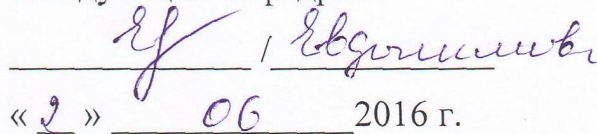 / Евдокимов
« 2 » 06 2016 г.